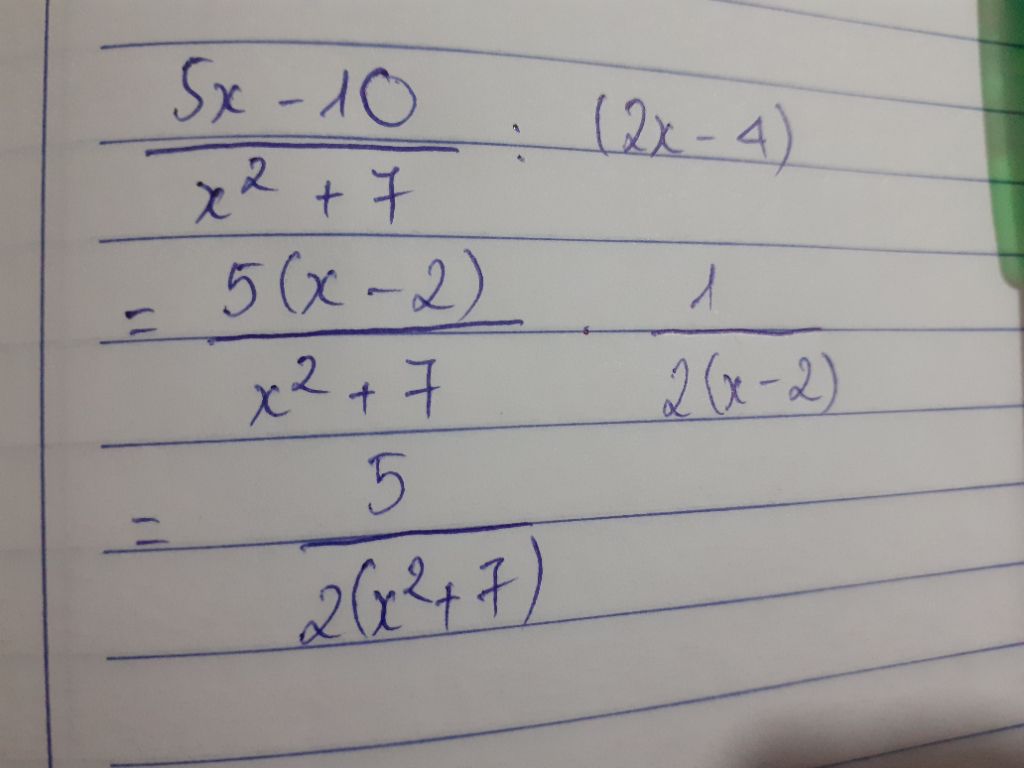 5x - 10 / x² + 7 : (2x - 4)
= 5(x - 2) / x² + 7 . 1 / 2(x - 2)
= 5 / 2(x² + 7)